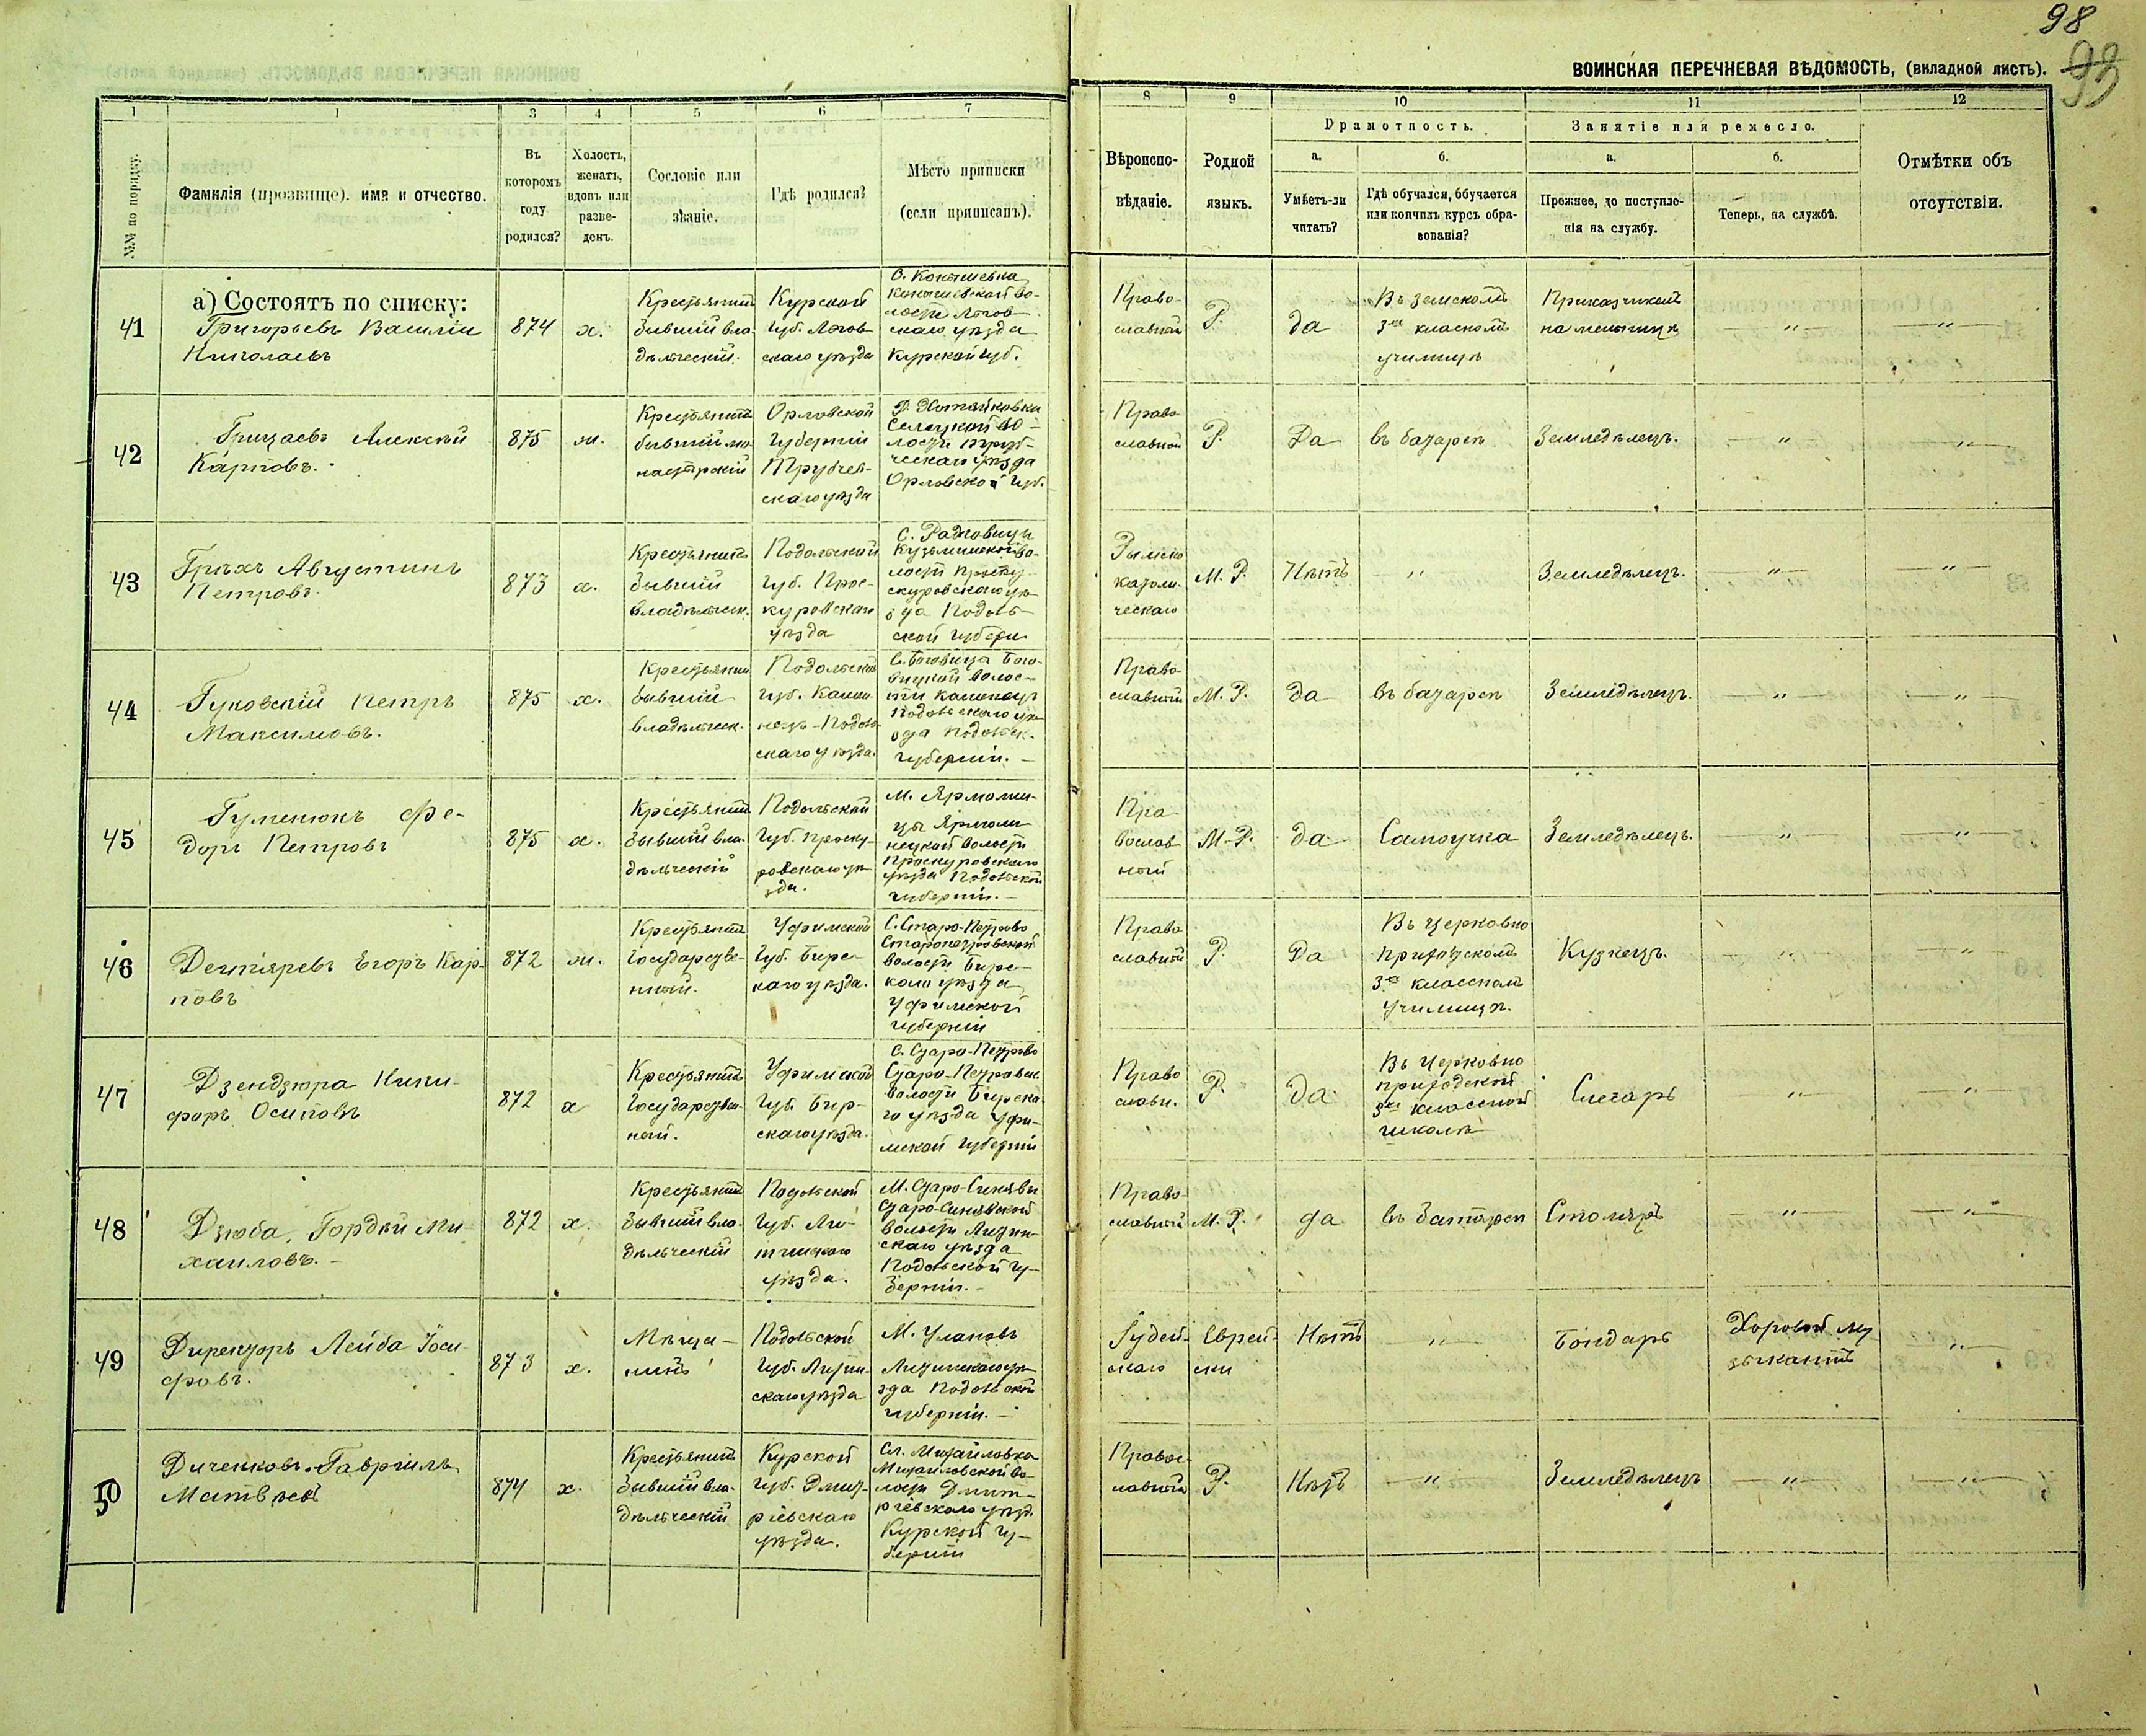 98
93
ВОИНСКАЯ ПЕРЕЧНЕВАЯ ВѢДОМОСТЬ, (вкладной листъ).
1 1 3 4 5 6 7 8 9 10 11 12
№№ по порядку.
Фамилія (прозвище). имя и отчество.
Въ которомъ году родился?
Холостъ, женатъ, вдовъ или разве-денъ.
Сословіе или званіе.
Гдѣ родился?
Мѣсто приписки (если приписанъ).
Вѣроиспо-вѣданіе.
Родной языкъ.
Грамотность.
а. Умѣетъ-ли читать?
б. Гдѣ обучался, обучается или кончилъ курсъ обра-зованія?
Занятіе или ремесло.
а. Прежнее, до поступле-нія на службу.
б. Теперь, на службѣ.
Отмѣтки объ отсутствіи.
а) Состоятъ по списку:
41 Григорьевъ Василій Николаевъ 874 х. Крестьянинъ бывшій вла-дѣльческій. Курской губ. Льгов-скаго уѣзда
С. Конышевка Конышевской во-лости Льгов-скаго уѣзда Курской губ.
Право-славный Р. да Въ земскомъ 3хъ класномъ училищѣ Приказчикомъ на мельницѣ " "
42 Грицаевъ Алексѣй Карповъ. 875 ж. Крестьянинъ бывшій мо-настрскій Орловской Губерніи Трубчев-скаго уѣзда
Селецкой во-лости Труб-ческаго уѣзда Орловской губ.
Право-славный Р. Да въ батареѣ Земледѣлецъ. " "
43 Грѣхъ Августинъ Петровъ. 873 х. Крестьянинъ бывшій владѣльческ. Подольской губ. Прос-куровскаго уѣзда
Кузьминской во-лости Проску-скуровскаго уѣ-зда Подоль-ской губерн
Римско католи-ческаго М. Р. Нѣтъ " Земледѣлецъ. " "
44 Гуковскій Петръ Максимовъ. 875 х. Крестьянинъ бывшій владѣльческ. Подольской губ. Каме-нецъ-Подоль-скаго уѣзда.
С. Боговица Бого-вицкой волос-ти Каменецъ Подольскаго уѣ-зда Подольск. губерніи.
Право-славный М. Р. да въ батареѣ Земледѣлецъ. " "
45 Гуменюкъ Фе-доръ Петровъ 875 х. Крестьянинъ бывшій вла-дѣльческій Подольской губ. Проску-ровскаго уѣ-зда.
М. Ярмолин-цы Ярмоли-нецкой волости Проскуровскаго уѣзда Подольской губерніи.
Пра-вослав-ный М. Р. да Самоучка Земледѣлецъ. " "
46 Дегтяревъ Егоръ Кар-повъ 872 ж. Крестьянинъ Государстве-нный. Уфимской губ. Бирс-каго уѣзда.
С. Старо-Петрово Старопетровской волости Бирс-каго уѣзда Уфимской губерніи
Право-славный Р. Да Въ церковно приходскомъ 3хъ класномъ училищѣ. Кузнецъ. " "
47 Дзендзюра Ники-форъ Осиповъ 872 х Крестьянинъ Государствен-ный. Уфимской губ. Бир-скаго уѣзда.
С. Старо-Петрово Старо-Петровск. волости Бирска-го уѣзда Уфи-мской губерніи
Право славн. Р. Да Въ церковно приходской 3хъ классной школѣ Слесарь " "
48 Дзюба Гордѣй Ми-хаиловъ. 872 х. Крестьянинъ бывшій вла-дѣльческій Подольской губ. Ли-тинскаго уѣзда.
М. Старо-Синявы Старо-Синявской волости Литин-скаго уѣзда Подольской гу-берніи.
Право-славный М. Р. да въ батареѣ Столяръ " "
49 Директоръ Лейба Іоси-фовъ. 873 х. Мѣща-нинъ Подольской губ. Литин-скаго уѣзда
М. Улановъ Литинскаго уѣ-зда Подольской губерніи.
Іудей-скаго Еврей-ски Нѣтъ " Бондарь Хоровой му-зыкантъ "
50 Диченковъ Гавріилъ Матвѣевъ 874 х. Крестьянинъ бывшій вла-дѣльческій Курской губ. Дмит-ріевскаго уѣзда.
Сл. Михайловка Михайловской во-лости Дмит-ріевскаго уѣзд. Курской гу-берніи
Правос-лавный Р. Нѣтъ " Земледѣлецъ " "